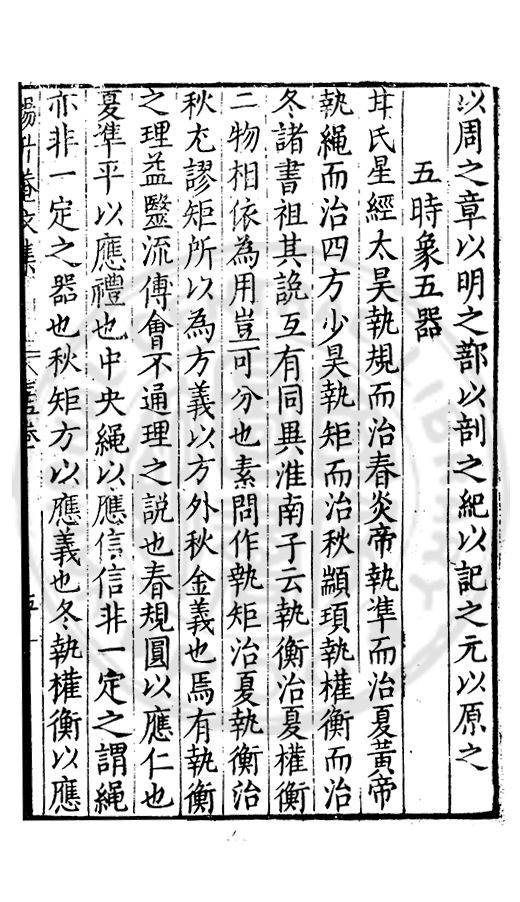 以周之章以明之蔀以剖之紀以記之元以原之
五時象五器
甘氏星經太昊執規而治春炎帝執準而治夏黃帝
執繩而治四方少昊執矩而治秋顓頊執權衡而治
冬諸書祖其說互有同異淮南子云執衡治夏權衡
二物相依為用豈可分也素問作執矩治夏執衡治
秋尤謬矩所以為方義以方外秋金義也焉有執衡
之理益鑿流傳會不通理之説也春規圓以應仁也
夏準平以應禮也中央繩以應信信非一定之謂繩
亦非一定之器也秋矩方以應義也冬執權衡以應
楊升菴文集